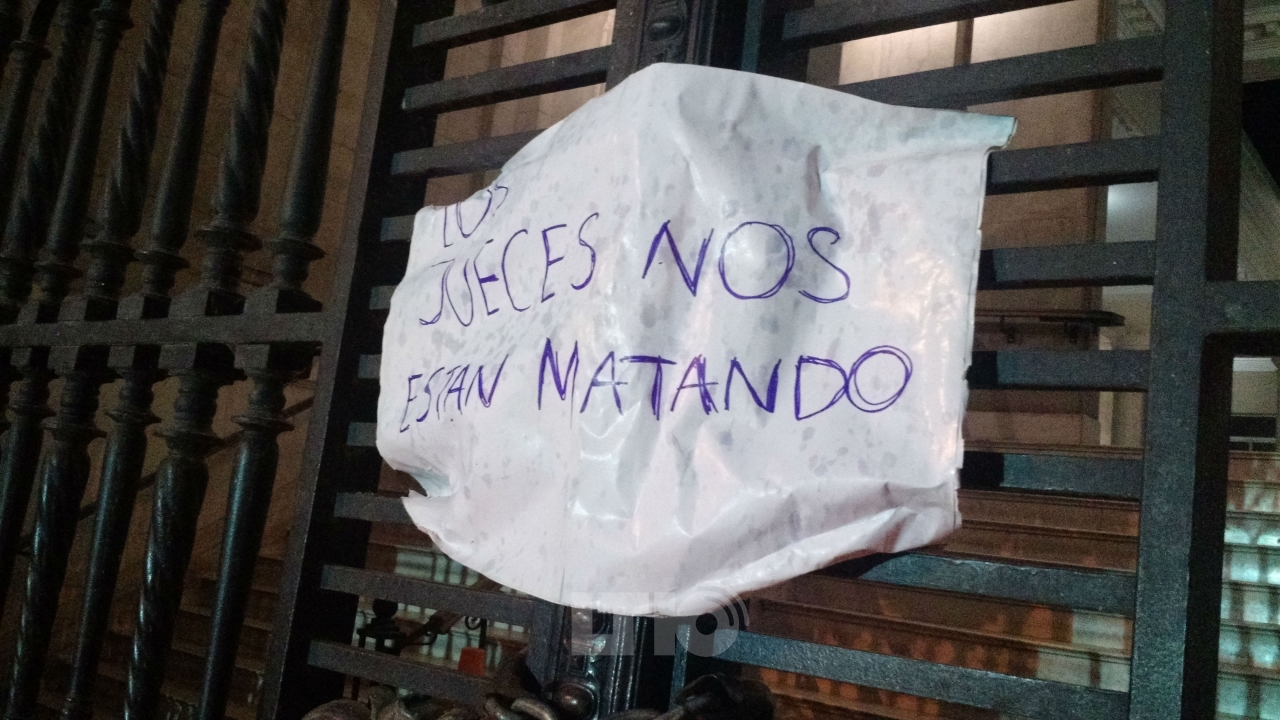 LOS
JUECES NOS
ESTAN MATANDO
LT10